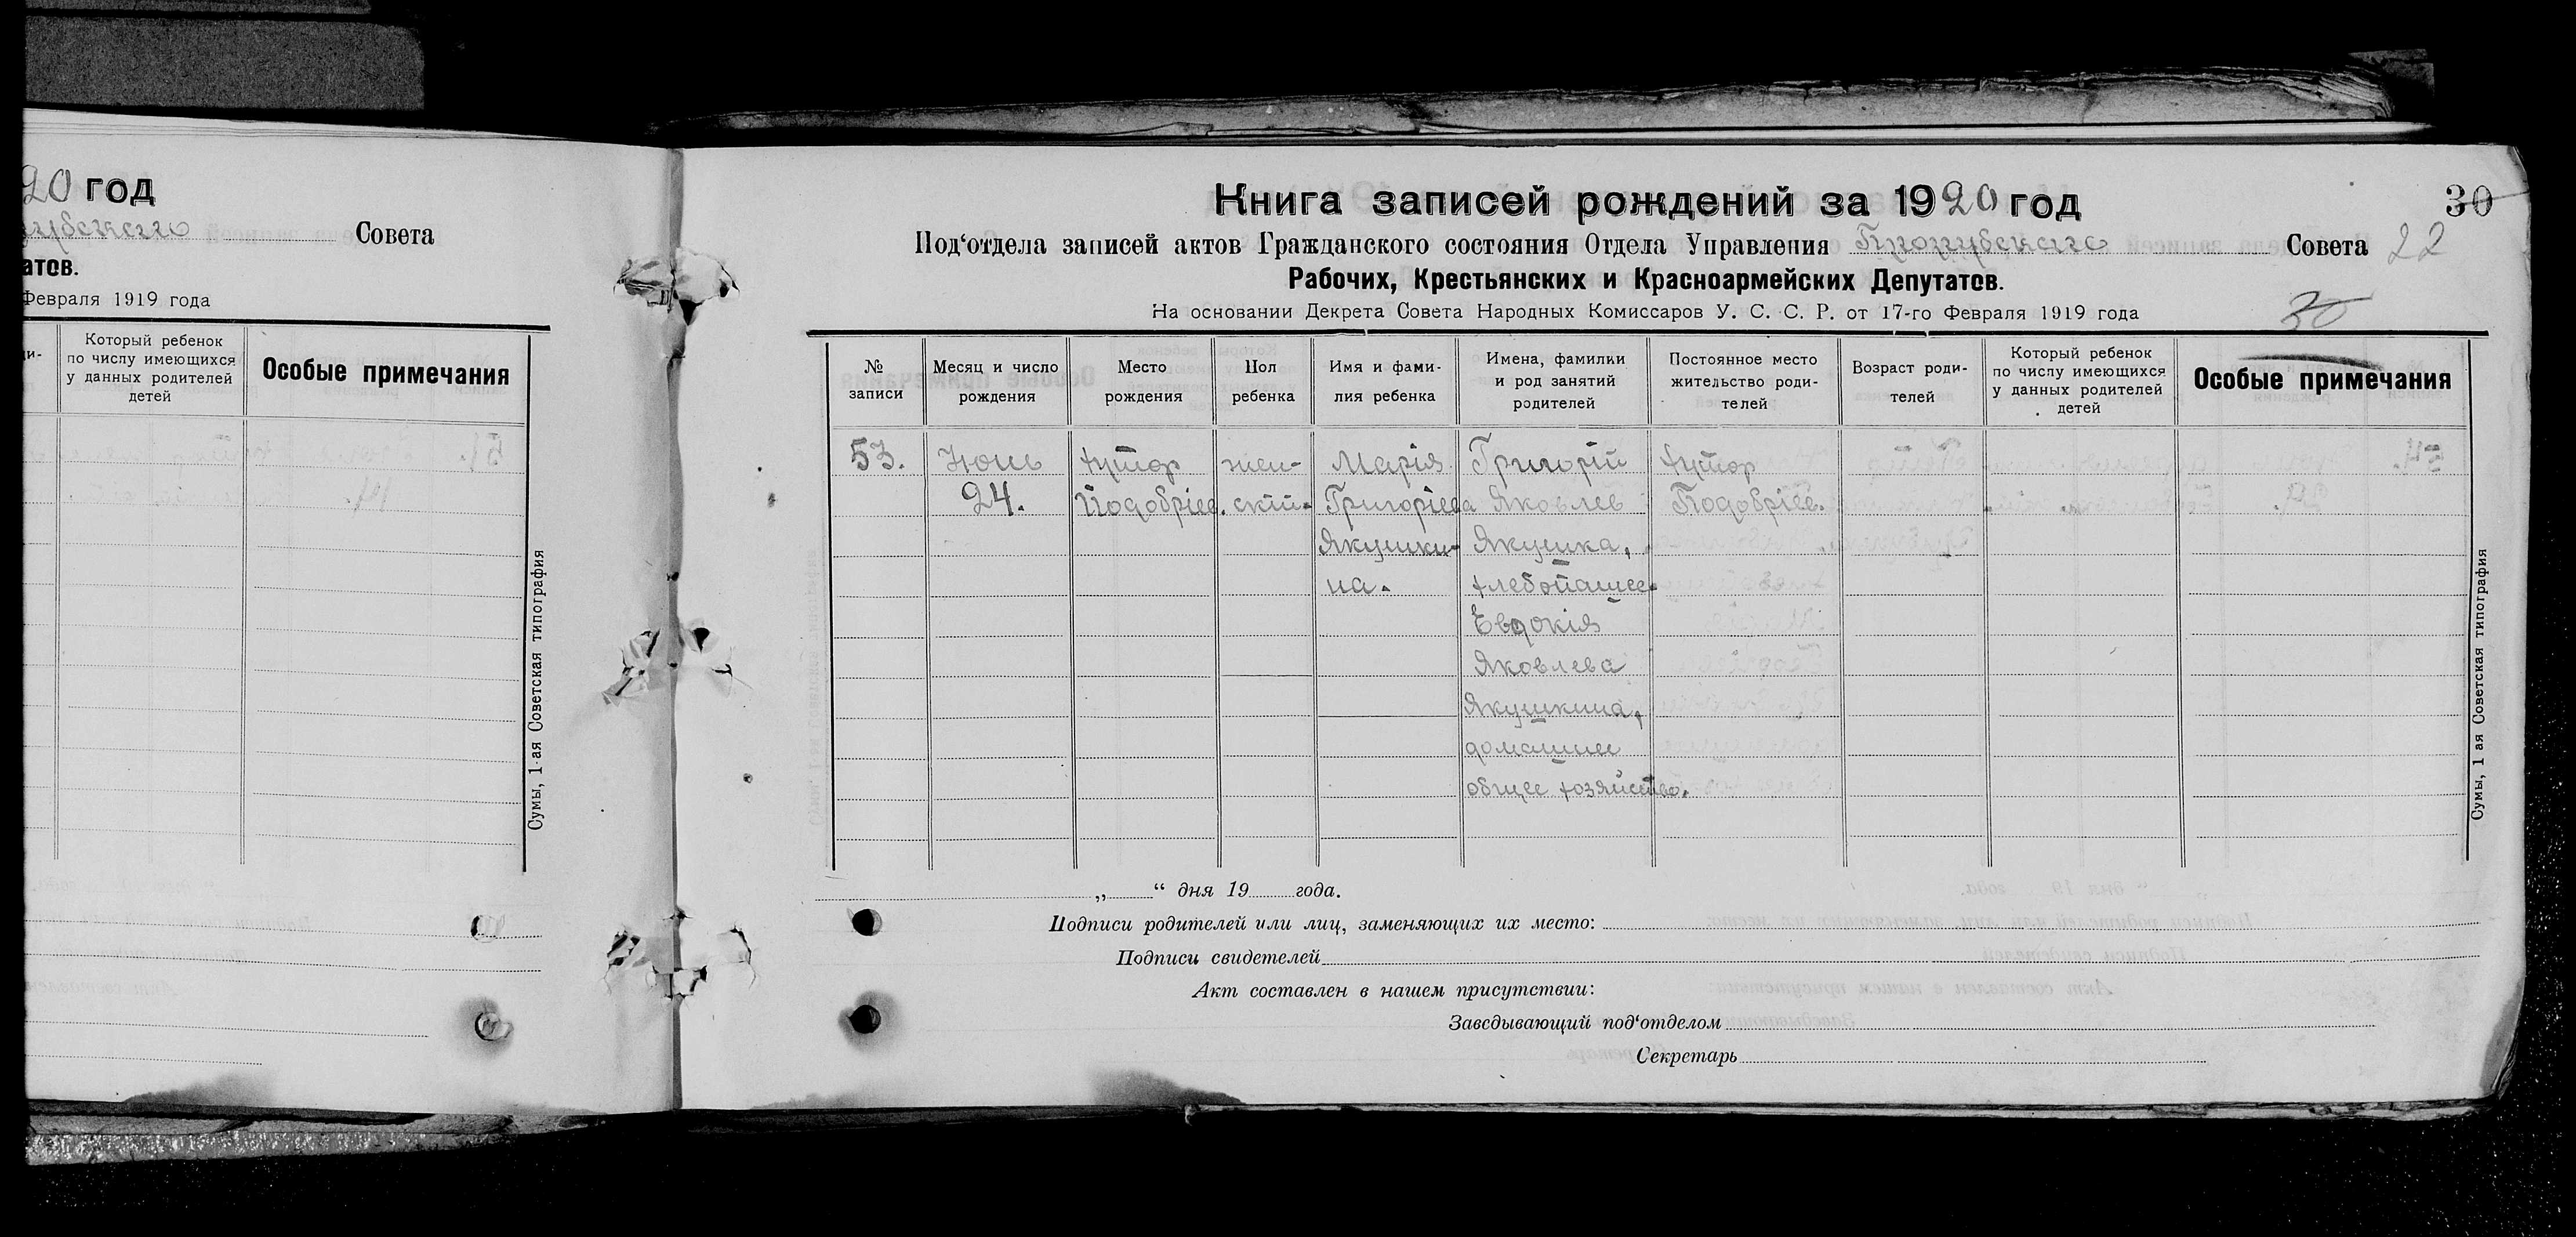 20 год
Совета
атов.
Февраля 1919 года
Который ребенок
по числу имеющихся
у данных родителей
детей
Особые примечания
Сумы, 1-ая Советская типография
Книга записей рождений за 1920 год
30
Под‘отдела записей актов Гражданского состояния Отдела Управления Совета
22
Рабочих, Крестьянских и Красноармейских Депутатов.
На основании Декрета Совета Народных Комиссаров У. С. С. Р. от 17-го Февраля 1919 года
30
№
записи
Месяц и число
рождения
Место
рождения
Пол
ребенка
Имя и фами-
лия ребенка
Имена, фамилии
и род занятий
родителей
Постоянное место
жительство роди-
телей
Возраст роди-
телей
Который ребенок
по числу имеющихся
у данных родителей
детей
Особые примечания
53.
Июнь
24.
хутор
Подобріев.
жен-
скій.
Марія
Григоріева
Якушки-
на.
Григорій
Яковлев
Якушка,
хлебопашец.
Евдокія
Яковлева
Якушкина,
домашнее
общее хозяйство.
хутор
Подобріев.
Сумы, 1 ая Советская типография
„ “ дня 19 года.
Подписи родителей или лиц, заменяющих их место:
Подписи свидетелей
Акт составлен в нашем присутствии:
Заведывающий под‘отделом
Секретарь